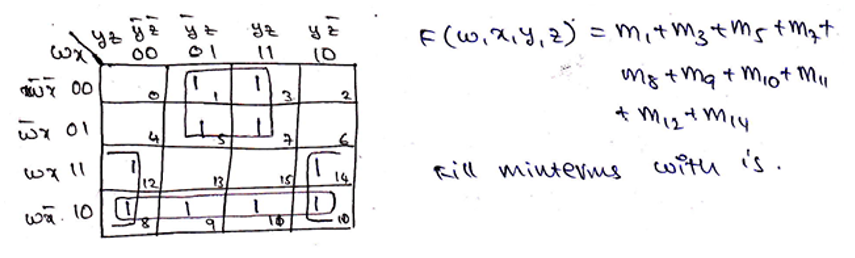 yz ȳz̄ ȳz yz yz̄
wx 00 01 11 10
w̄x̄ 00 0 1 1 1 3 2
w̄x 01 4 1 5 1 7 6
wx 11 1 12 13 15 1 14
wx̄. 10 1 8 1 9 1 10 1 10
F(w,x,y,z) = m₁+m₃+m₅+m₇+
m₈+m₉+m₁₀+m₁₁
+m₁₂+m₁₄
Fill minterms with 1's.